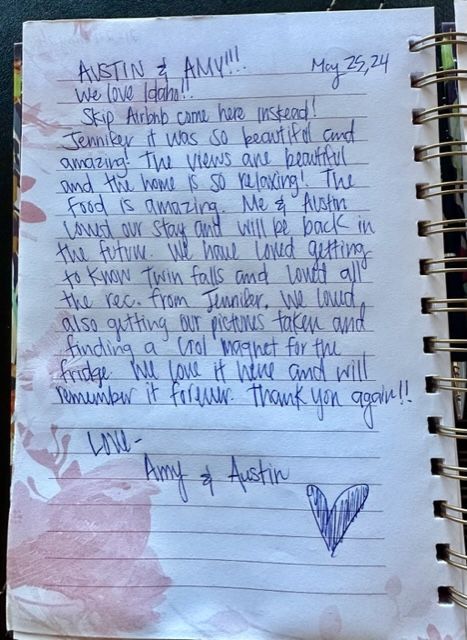 AUSTIN & AMY!!! May 25, 24
We love Idaho!!
Skip Airbnb come here instead!
Jennifer it was so beautiful and
amazing! The views are beautiful
and the home is so relaxing! The
food is amazing. Me & Austin
loved our stay and will be back in
the future. We have loved getting
to know Twin falls and loved all
the rec. from Jennifer. We loved
also getting our pictures taken and
finding a cool magnet for the
fridge. We love it here and will
remember it forever. Thank you again!!
Love-
Amy & Austin